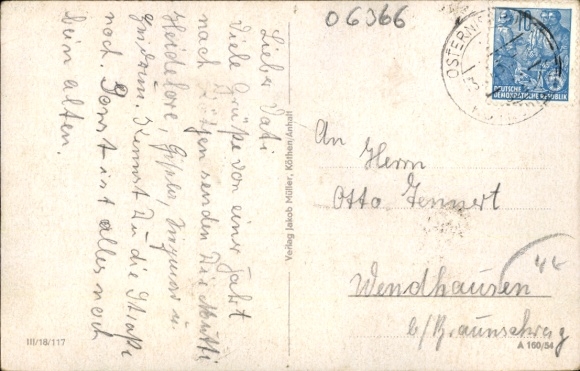 06366
OSTERNIE
10
DEUTSCHE
DEMOKRATISCHE REPUBLIK
Lieber Vati
Viele Grüße von einer Fahrt
nach senden Dir Mutti
Heidelore, Gisela, u.
Kennst Du die Straße
noch. Sonst ist alles noch
beim alten.
Verlag Jakob Müller, Köthen/Anhalt
An Herrn
Otto Tennert
Wendhausen
b/Braunschweig
III/18/117
A 160/54